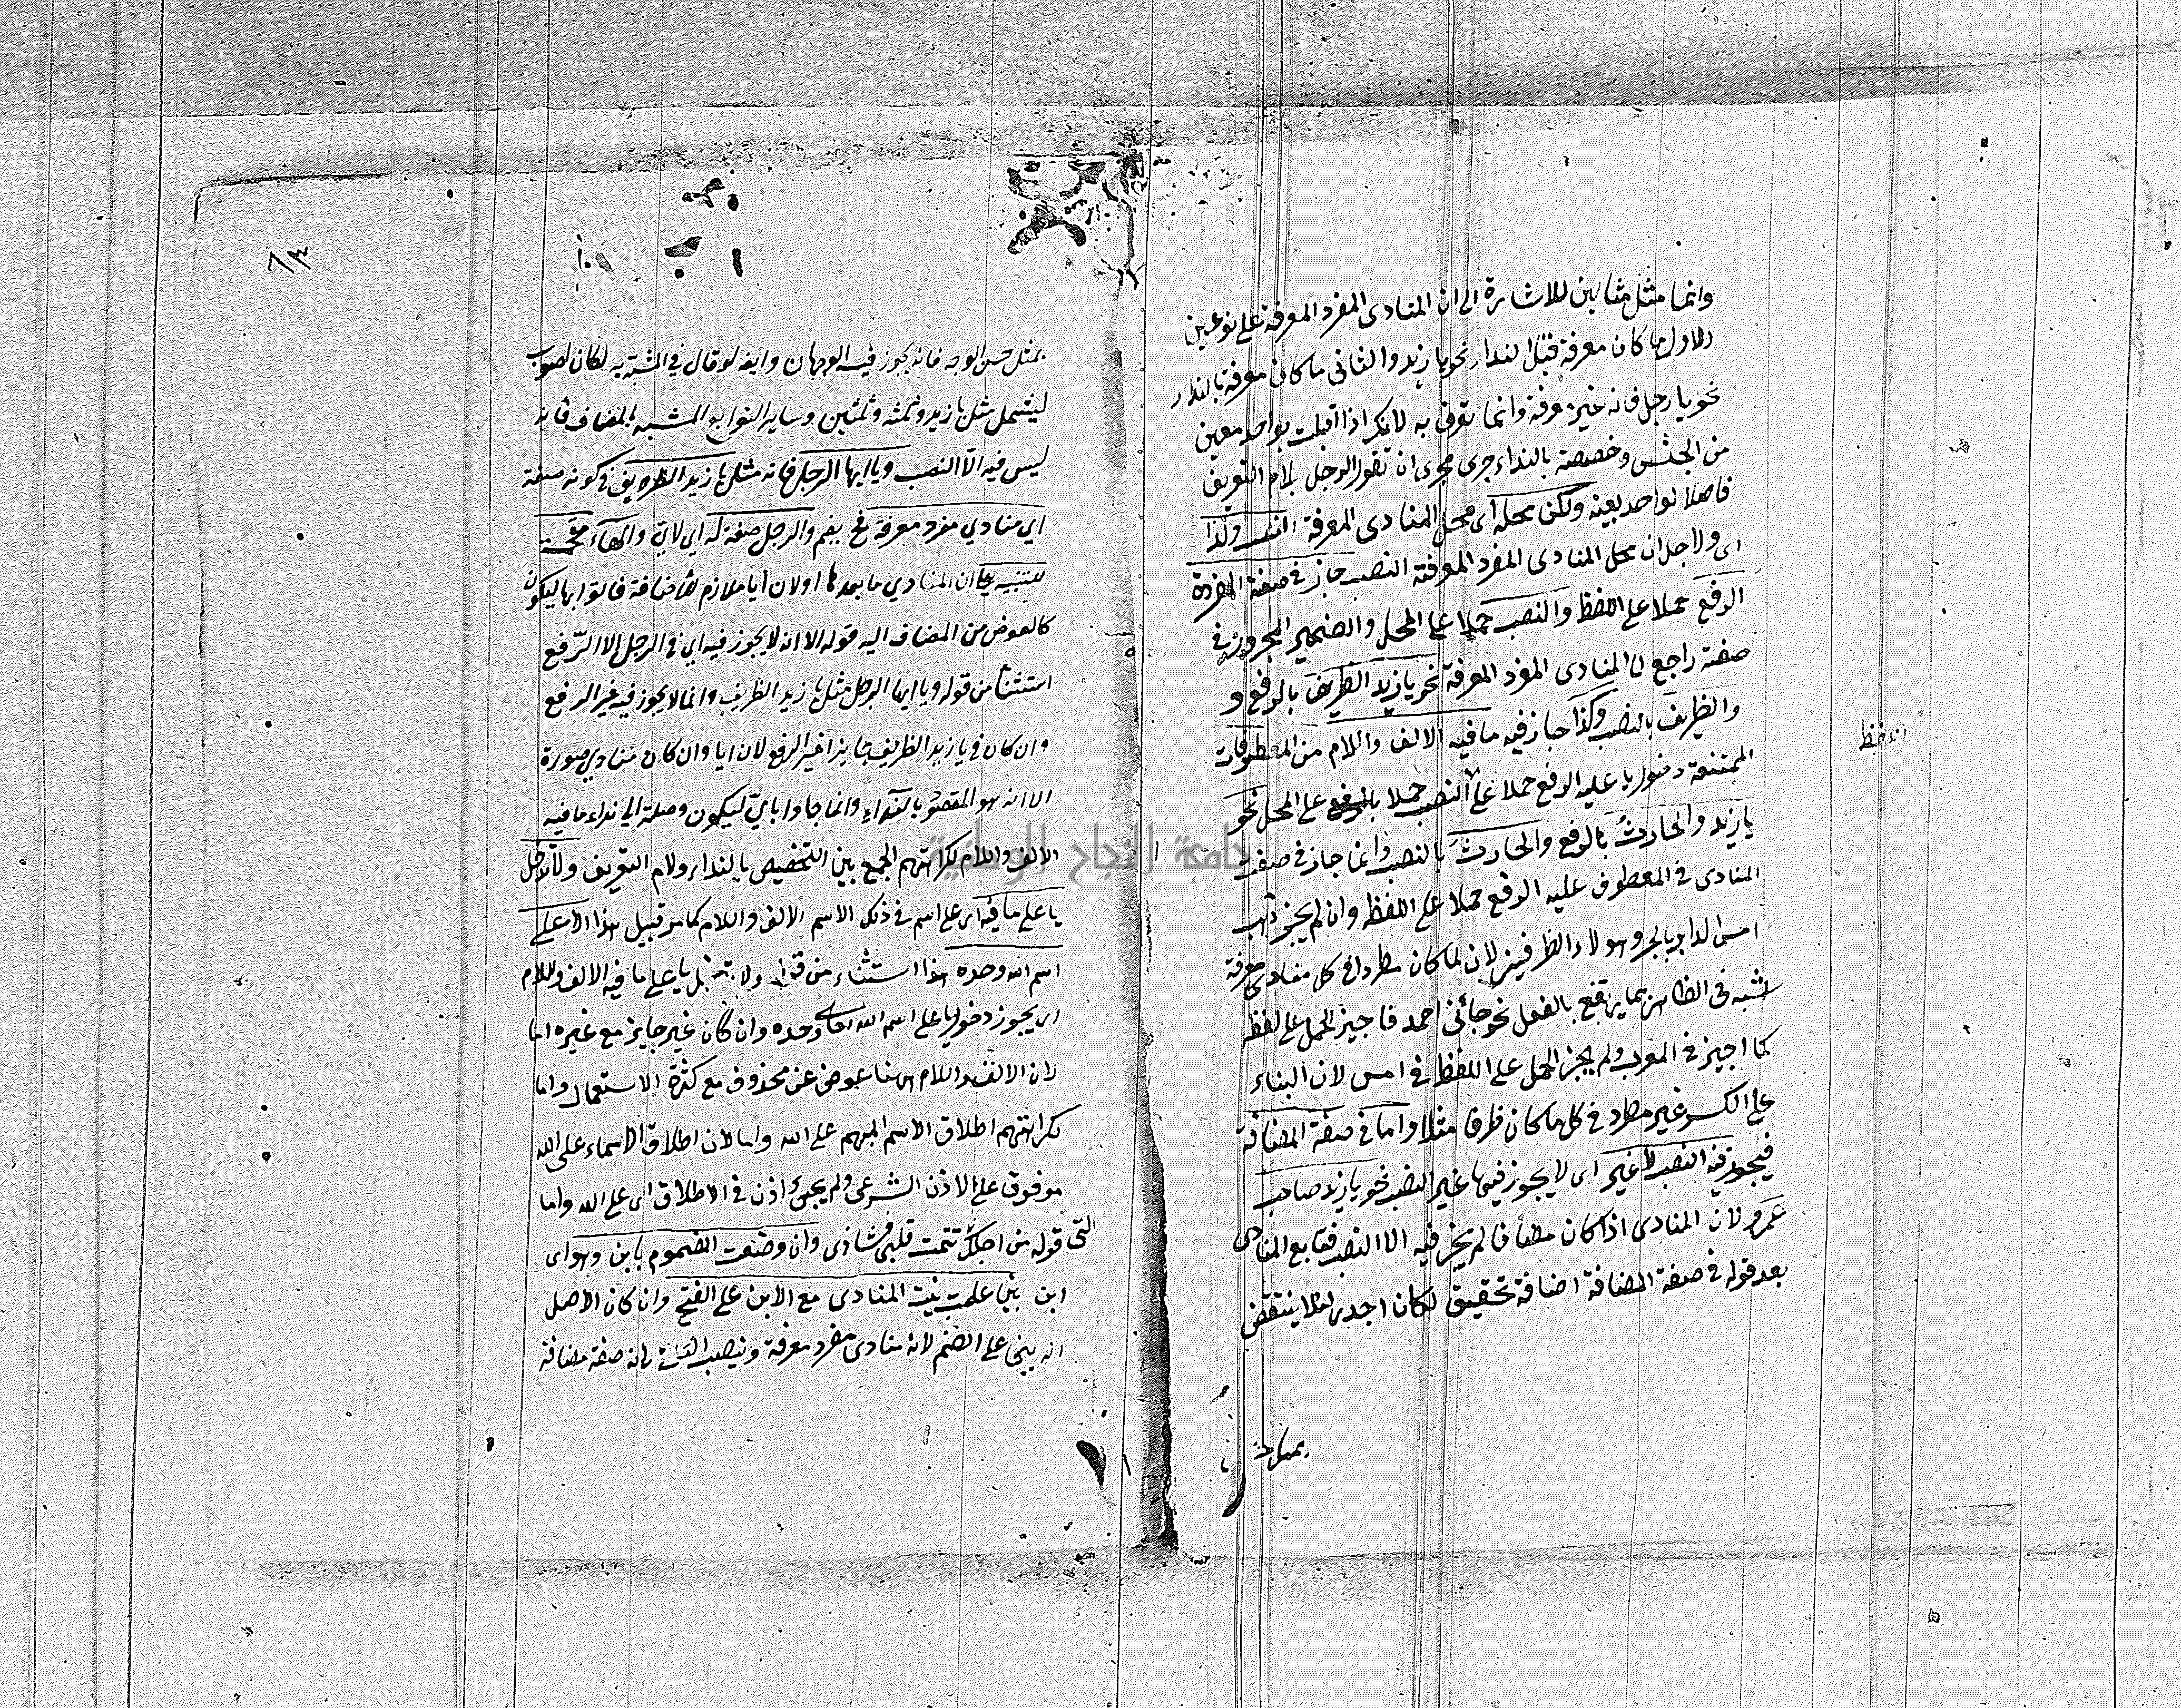 وانما مثل مثالين للاشارة الى ان المنادى المفرد المعرفة على نوعين
الاول ما كان معرفة قبل النداء نحو يا زيد والثانى ما كان معرفة بالنداء
نحو يا رجل فانه غير معرفة وانما تعرف به لانك اذا اقبلت بواحد معين
من الجنس وخصصته بالنداء جرى مجرى ان تقول الرجل بلام التعريف
فاصلا لواحد بعينه ولكن محله اى محل المنادى المعرفة النصب ولذا
اى ولاجل ان محل المنادى المفرد المعرفة النصب جاز فى صفته المفردة
الرفع حملا على اللفظ والنصب حملا على المحل والضمير المجرور فى
صفته راجع الى المنادى المفرد المعرفة نحو يا زيد الظريف بالرفع و
والظريف بالنصب وكذا جاز فيه ما فيه الالف واللام من المعطوفات
الممتنعة دخول يا عليه الرفع حملا على النصب حملا على المحل نحو
يا زيد والحارث بالرفع والحارث بالنصب وانما جاز فى صفة
المنادى فى المعطوف عليه الرفع حملا على اللفظ وان لم يجز ذهب
امس الدابر بالجر وهولاء الظرفين لان لما كان مطردا فى كل منادى معرفة
اشبه فى الظاهر بما يرتفع بالفعل نحو جائنى احمد فاجيز الحمل على لفظه
كما اجيز فى المعرب ولم يجز الحمل على اللفظ فى امس لان البناء
على الكسر غير مطرد فى كل ما كان ظرفا مثلا واما فى صفة المضافة
فيجوز فيه النصب لا غير اى لا يجوز فيها غير النصب نحو يا زيد صاحب
عمرو لان المنادى اذا كان مضافا لم يجز فيه الا النصب فتابع المنادى
بعد قوله فى صفة المضافة اضافة تحقيق لكان اجدى لئلا ينتقض
بمثل
اللفظ
١٣
بمثل حسن الوجه فانه يجوز فيه الوجهان وايضا لو قال فى المشبه به لكان اصوب
ليشمل مثل يا زيد وثلثه وثلثين وساير التوابع المشبه بالمضاف فانه
ليس فيه الا النصب ويا ايها الرجل فانه مثل يا زيد الظريف فى كونه صفة
اي منادي مفرد معرفة مبني بضم والرجل صفة له اي لاي والهاء مقحمة
للتنبيه على ان المنادي ما بعدها او لان أيا ملازم للاضافة فاتوا بها ليكون
كالعوض من المضاف اليه قوله الا انه لا يجوز فيه اي فى الرجل الا الرفع
استثنا من قوله ويا ايها الرجل مثل يا زيد الظريف وانما لا يجوز فيه غير الرفع
وان كان فى يا زيد الظريف جايز اغير الرفع لان ايا وان كان منادي صورة
الا انه هو المقصود بالنداء وانما جاوا باي ليكون وصلة الي نداء ما فيه
الالف واللام لكراهتهم الجمع بين التخصيص بالنداء ولام التعريف ولا تدخل
يا على ما فيه اى على اسم فى ذلك الاسم الالف واللام كما مر قبيل هذا الا على
اسم الله وحده هذا استثناء من قوله ولا تدخل يا على ما فيه الالف واللام
اى يجوز دخول يا على اسم الله تعالى وحده وان كان غير جايز مع غيره اما
لان الالف واللام هنا عوض عن محذوف مع كثرة الاستعمال واما
لكراهتهم اطلاق الاسم المبهم على الله واما لان اطلاق الاسماء على الله
موقوف على الاذن الشرعى ولم يجئ اذن فى الاطلاق اى على الله واما
التى قوله من اجلك تيمت قلبى فشاذ وان وضعت المضموم بابن وهو اى
ابن بين علمين بنيت المنادى مع الابن على الفتح وان كان الاصل
ان يبنى على الضم لانه منادى مفرد معرفة وينصب لانه صفة مضافة
جامعة النجاح الوطنية